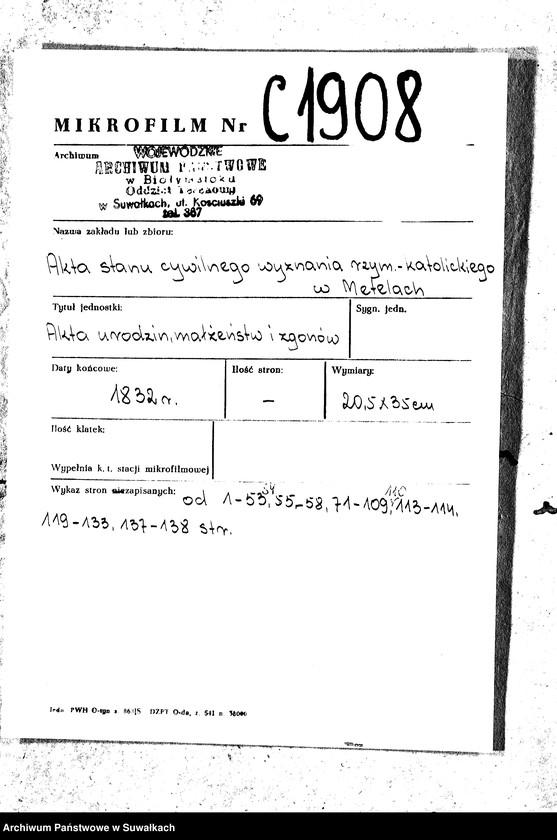 MIKROFILM Nr C1908
Archiwum
WOJEWÓDZKIE
ARCHIWUM PAŃSTWOWE
w Białymstoku
Oddział Terenowy
w Suwałkach, ul. Kościuszki 69
tel. 367
Nazwa zakładu lub zbioru:
Akta stanu cywilnego wyznania rzym.-katolickiego
w Metelach
Tytuł jednostki:
Sygn. jedn.
Akta urodzin, małżeństw i zgonów
Daty końcowe:
Ilość stron:
Wymiary:
1832 r.
–
20,5 x 35 cm
Ilość klatek:
Wypełnia k. t. stacji mikrofilmowej
Wykaz stron niezapisanych:
54
110
od 1-53, 55-58, 71-109, 113-114,
119-133, 137-138 str.
PWH
DZPT
Archiwum Państwowe w Suwałkach